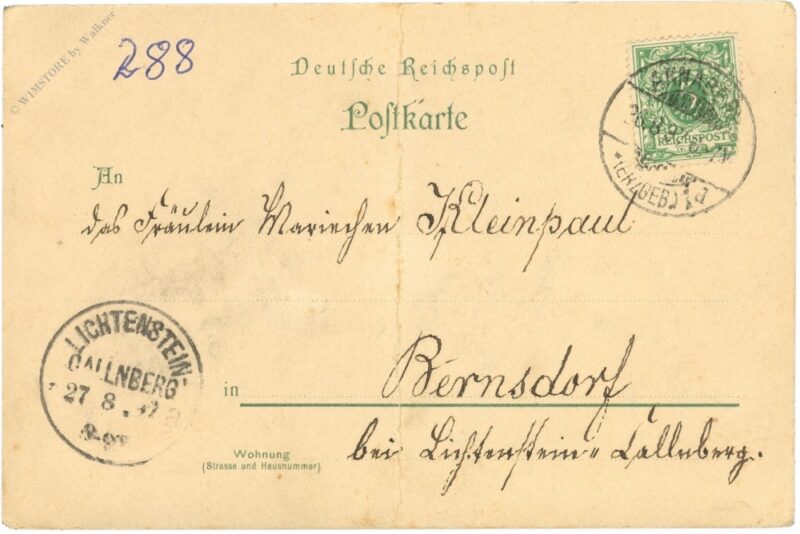 © WIMSTORE by Walkner
288
Deutsche Reichspost
Postkarte
REICHSPOST
(ERZGEB.)
An
das Fräulein Mariechen Kleinpaul
LICHTENSTEIN-
CALLNBERG
27 8
in
Bernsdorf
Wohnung
(Strasse und Hausnummer)
bei Lichtenstein-Callnberg.